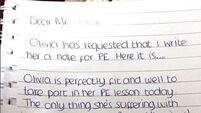 Dear M
Olivia has requested that I write
her a note for PE. Here it is...
Olivia is perfectly fit and well to
take part in her PE lesson today.
The only thing she's suffering with